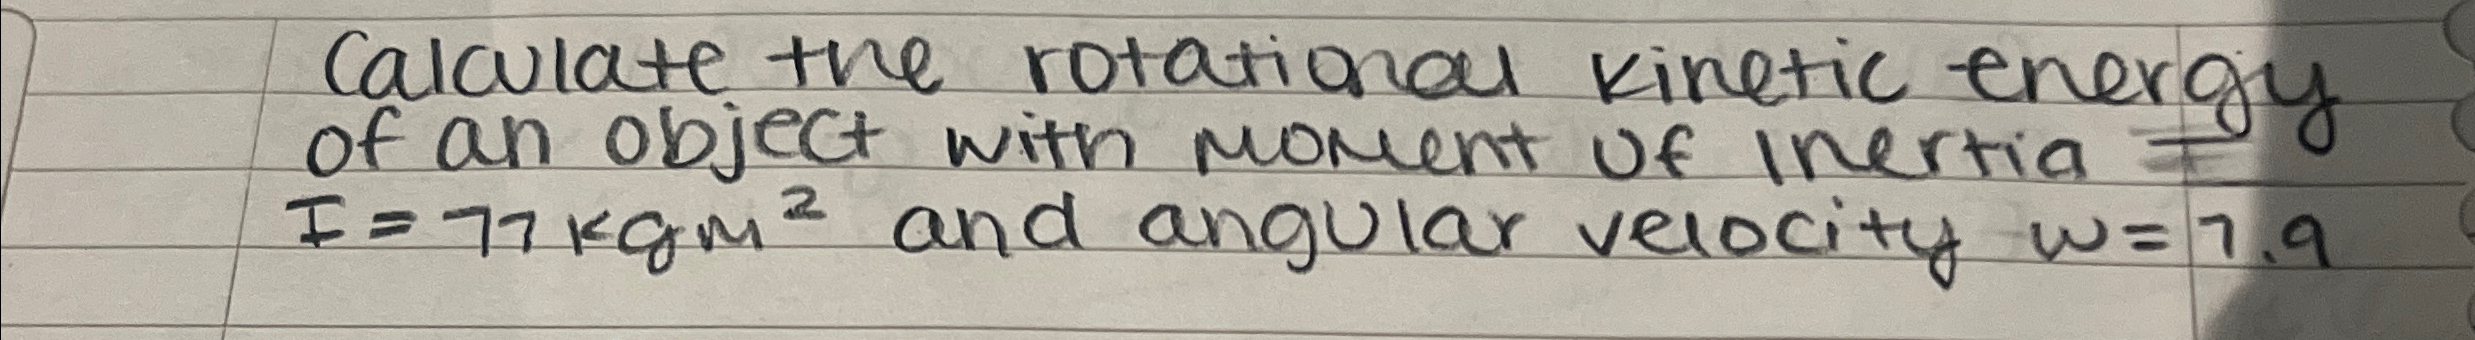 Calculate the rotational kinetic energy
of an object with moment of inertia =
I = 77 kgm² and angular velocity w = 7.9